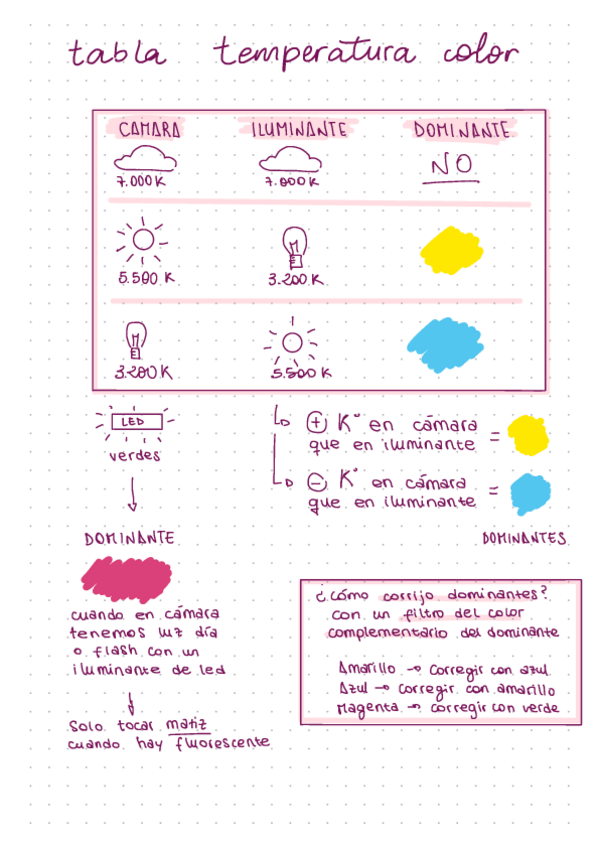 tabla temperatura color
CAMARA ILUMINANTE DOMINANTE
7.000K 7.000K NO
5.500 K 3.200 K
3.200 K 5.500 K
LED
verdes
DOMINANTE
cuando en cámara
tenemos luz día
o flash con un
iluminante de led
Solo tocar matiz
cuando hay fluorescente
+ K° en cámara
que en iluminante =
- K° en cámara
que en iluminante =
DOMINANTES
¿cómo corrijo dominantes?
con un filtro del color
complementario del dominante
Amarillo → corregir con azul
Azul → corregir con amarillo
Magenta → corregir con verde